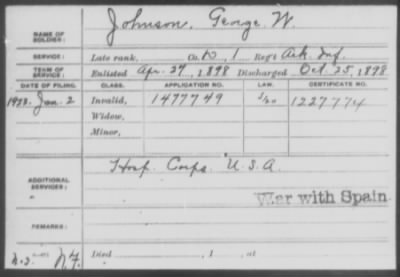 NAME OF SOLDIER: Johnson, George W.
SERVICE: Late rank, Co. D, 1 Reg't Ark. Inf.
TERM OF SERVICE: Enlisted Apr. 27, 1898 Discharged Oct 25, 1898
DATE OF FILING. CLASS. APPLICATION NO. LAW. CERTIFICATE NO.
1923 Jan. 2 Invalid, 1477749 1227774
Widow,
Minor,
ADDITIONAL SERVICES: Hosp. Corps. U.S.A.
War with Spain
REMARKS:
Died , 1 , at